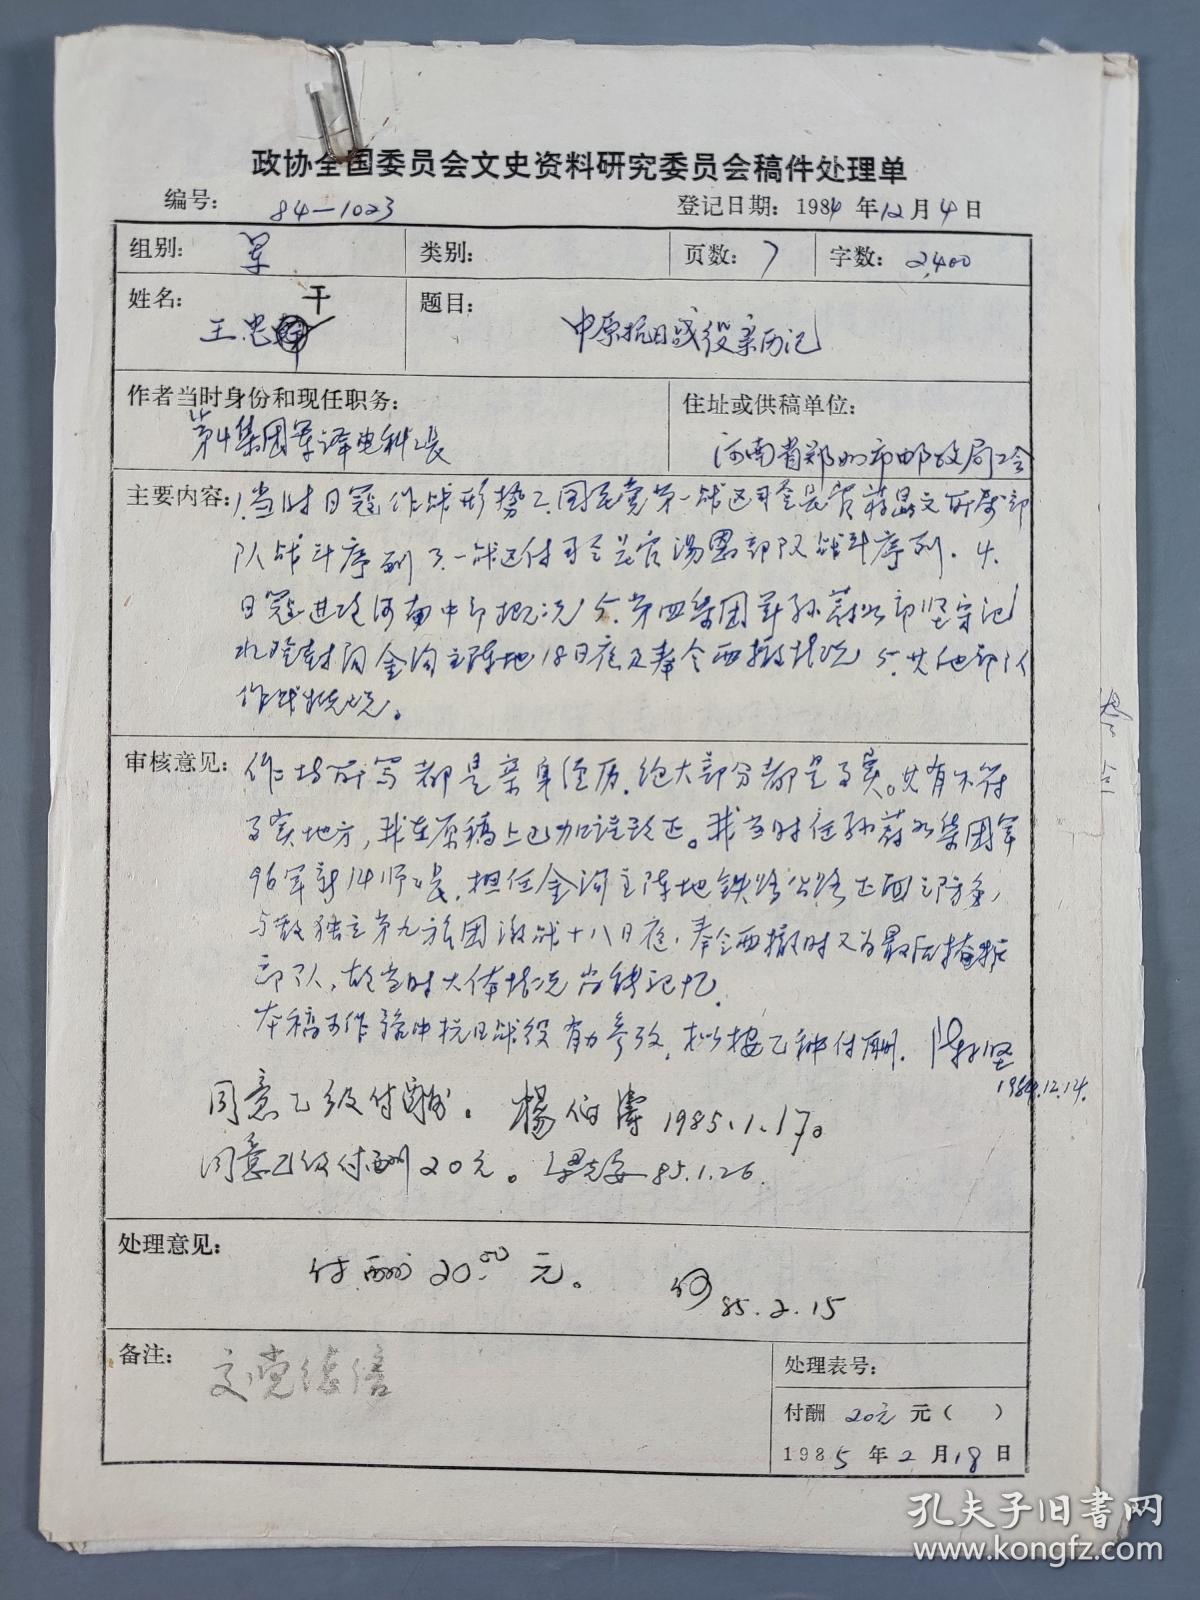 政协全国委员会文史资料研究委员会稿件处理单
编号: 84-1023 登记日期: 1984年12月4日
组别: 军 类别: 页数: 7 字数: 2,400
姓名: 王忠干 题目: 中原抗日战役亲历记
作者当时身份和现任职务: 住址或供稿单位:
第4集团军译电科科长 河南省郑州市邮政局工会
主要内容: 1.当时日寇作战形势 2.国民党第一战区司令长官蒋鼎文所属部
队战斗序列 3.一战区付司令长官汤恩 部队战斗序列. 4.
日寇进攻河南中部概况 5.第四集团军孙蔚如部坚守汜
水 金沟主阵地18日夜及奉令西撤状况 5.其他部队
作战概况。
审核意见: 作者所写都是亲身经历,绝大部分都是事实。其有不符
事实地方,我在原稿上已加注改正。我当时任孙蔚如集团军
96军新14师师长,担任金沟主阵地铁路公路正面之防务,
与敌独立第九旅团激战十八日夜,奉令西撤时又为最后掩护
部队,故当时大体状况尚能记忆.
本稿可作豫中抗日战役有力参考,拟按乙种付酬. 陈子坚
1984.12.14.
同意乙级付酬。 杨伯涛 1985.1.17。
同意乙级付酬20元。 85.1.26.
处理意见: 付酬20.00元。 何 85.2.15
备注: 处理表号:
付酬 20元 元( )
1985年2月18日
孔夫子旧书网
www.kongfz.com